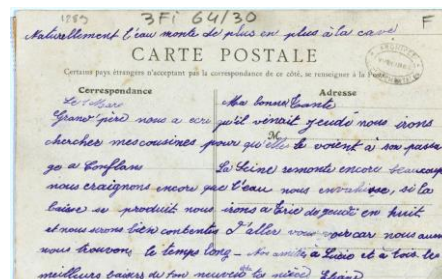 1983
3Fi 64/30
F
Naturellement l'eau monte de plus en plus à la cave
CARTE POSTALE
Certains pays étrangers n'acceptant pas la correspondance de ce côté, se renseigner à la Poste
Correspondance
Adresse
Le 1 Mars
Ma bonne Tante
Grand' père nous a écrit qu'il viendrait Jeudi nous irons
M
chercher mes cousines pour qu'elle le voient à son passa
ge a Conflans
La Seine remonte encore beaucoup
nous craignons encore que l'eau nous envahisse, si la
baisse se produit nous irons a de jeudi en huit
et nous serons bien contentes d'aller vous voir car nous aussi
nous trouvons le temps long - Nos amitiés à et à tous les
meilleurs baisers de ton neveu et ta nièce